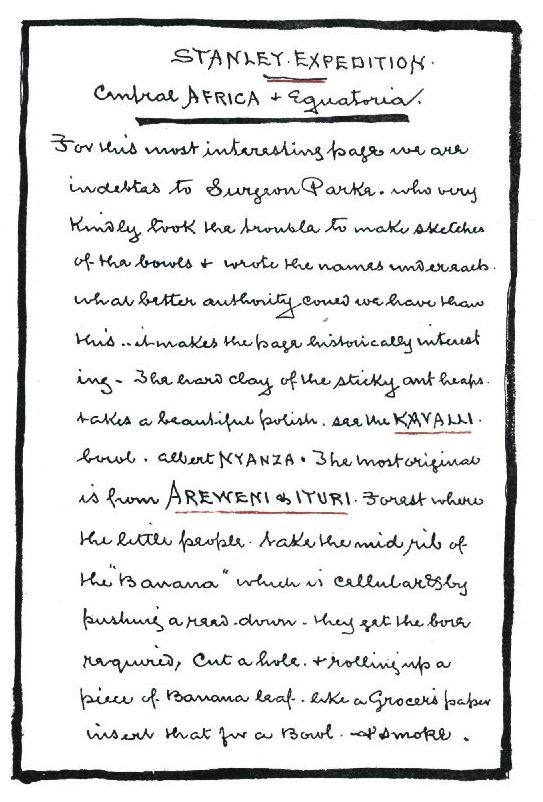 STANLEY. EXPEDITION.
Central AFRICA + Equatoria.
For this most interesting page we are
indebted to Surgeon Parke. who very
kindly took the trouble to make sketches
of the bowls + wrote the names undereach.
what better authority coued we have than
this.. it makes the page historically interest
ing - The hard clay of the sticky ant heaps.
takes a beautiful polish. see the KAVALLI.
bowl. Albert NYANZA. The most original
is from AREWENI & ITURI. Forest where
the little people. take the mid rib of
the "Banana" which is cellular & by
pushing a reed. down - they get the bore
required, Cut a hole. + rolling up a
piece of Banana leaf. like a Grocer's paper
insert that for a Bowl. + smoke.